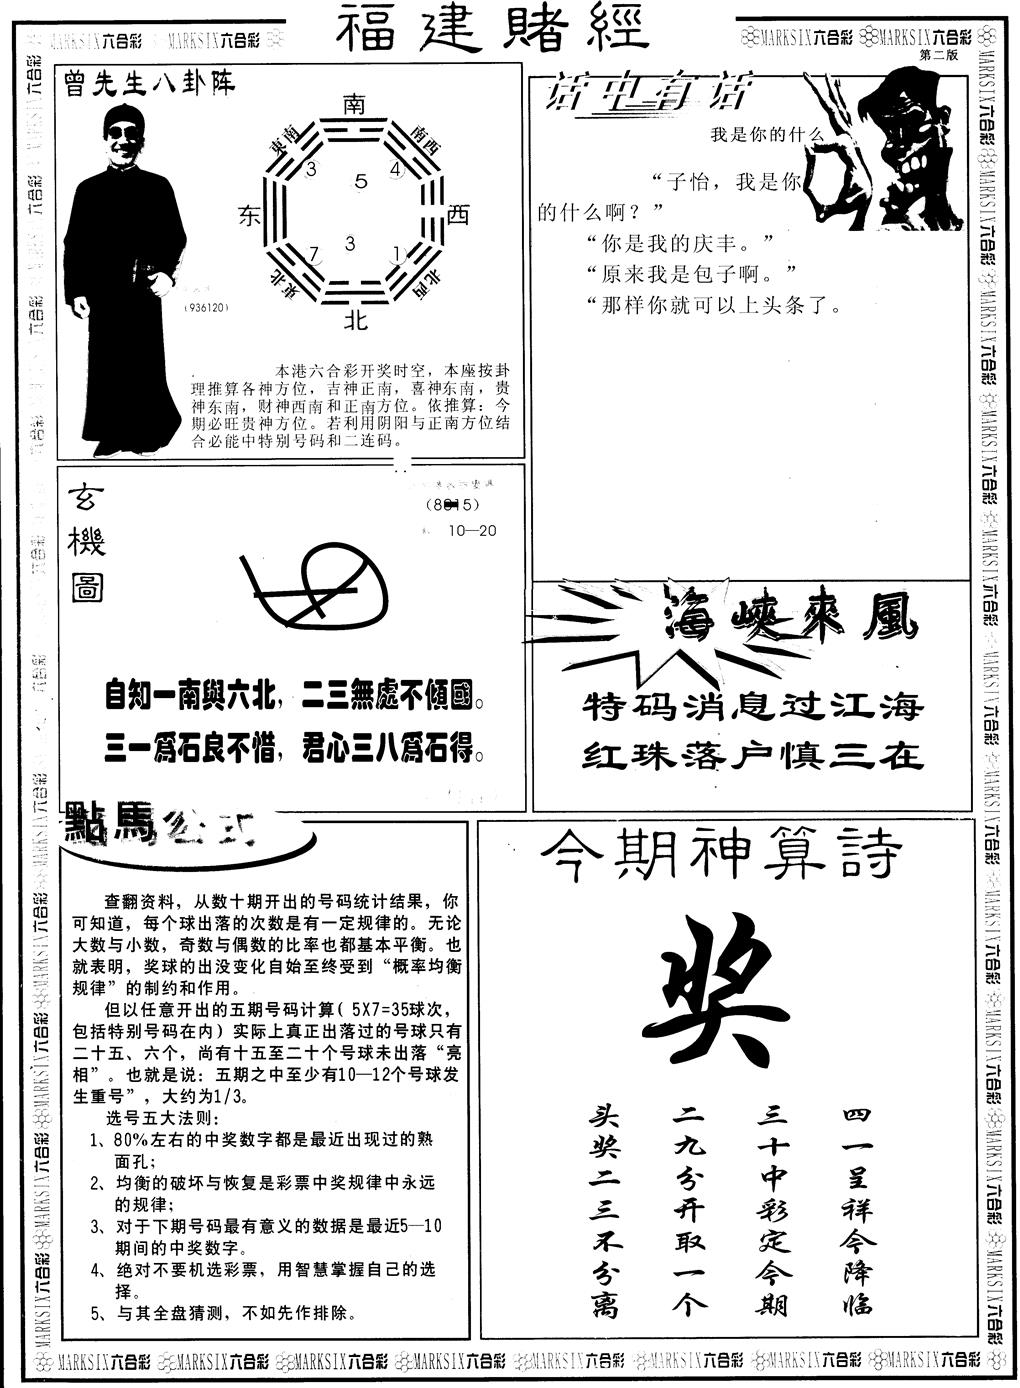 福建賭經
MARKSIX六合彩 MARKSIX六合彩
MARKSIX六合彩 MARKSIX六合彩
第二版
曾先生八卦阵
南
東南
南西
3
4
5
东
西
3
7
1
東北
北西
北
(936120)
本港六合彩开奖时空，本座按卦
理推算各神方位，吉神正南，喜神东南，贵
神东南，财神西南和正南方位。依推算：今
期必旺贵神方位。若利用阴阳与正南方位结
合必能中特别号码和二连码。
话中有话
我是你的什么
“子怡，我是你
的什么啊？”
“你是我的庆丰。”
“原来我是包子啊。”
“那样你就可以上头条了。
玄機圖
10—20
自知一南與六北，二三無處不傾國。
三一為石良不惜，君心三八為石得。
海峽來風
特码消息过江海
红珠落户慎三在
點馬公式
查翻资料，从数十期开出的号码统计结果，你
可知道，每个球出落的次数是有一定规律的。无论
大数与小数，奇数与偶数的比率也都基本平衡。也
就表明，奖球的出没变化自始至终受到“概率均衡
规律”的制约和作用。
但以任意开出的五期号码计算( 5X7=35球次，
包括特别号码在内) 实际上真正出落过的号球只有
二十五、六个，尚有十五至二十个号球未出落“亮
相”。也就是说：五期之中至少有10—12个号球发
生重号”，大约为1/3。
选号五大法则：
1、80%左右的中奖数字都是最近出现过的熟
面孔；
2、均衡的破坏与恢复是彩票中奖规律中永远
的规律；
3、对于下期号码最有意义的数据是最近5—10
期间的中奖数字。
4、绝对不要机选彩票，用智慧掌握自己的选
择。
5、与其全盘猜测，不如先作排除。
今期神算詩
奖
四一呈祥今降临
三十中彩定今期
二九分开取一个
头奖二三不分离
MARKSIX六合彩 MARKSIX六合彩 MARKSIX六合彩 MARKSIX六合彩 MARKSIX六合彩 MARKSIX六合彩 MARKSIX六合彩 MARKSIX六合彩